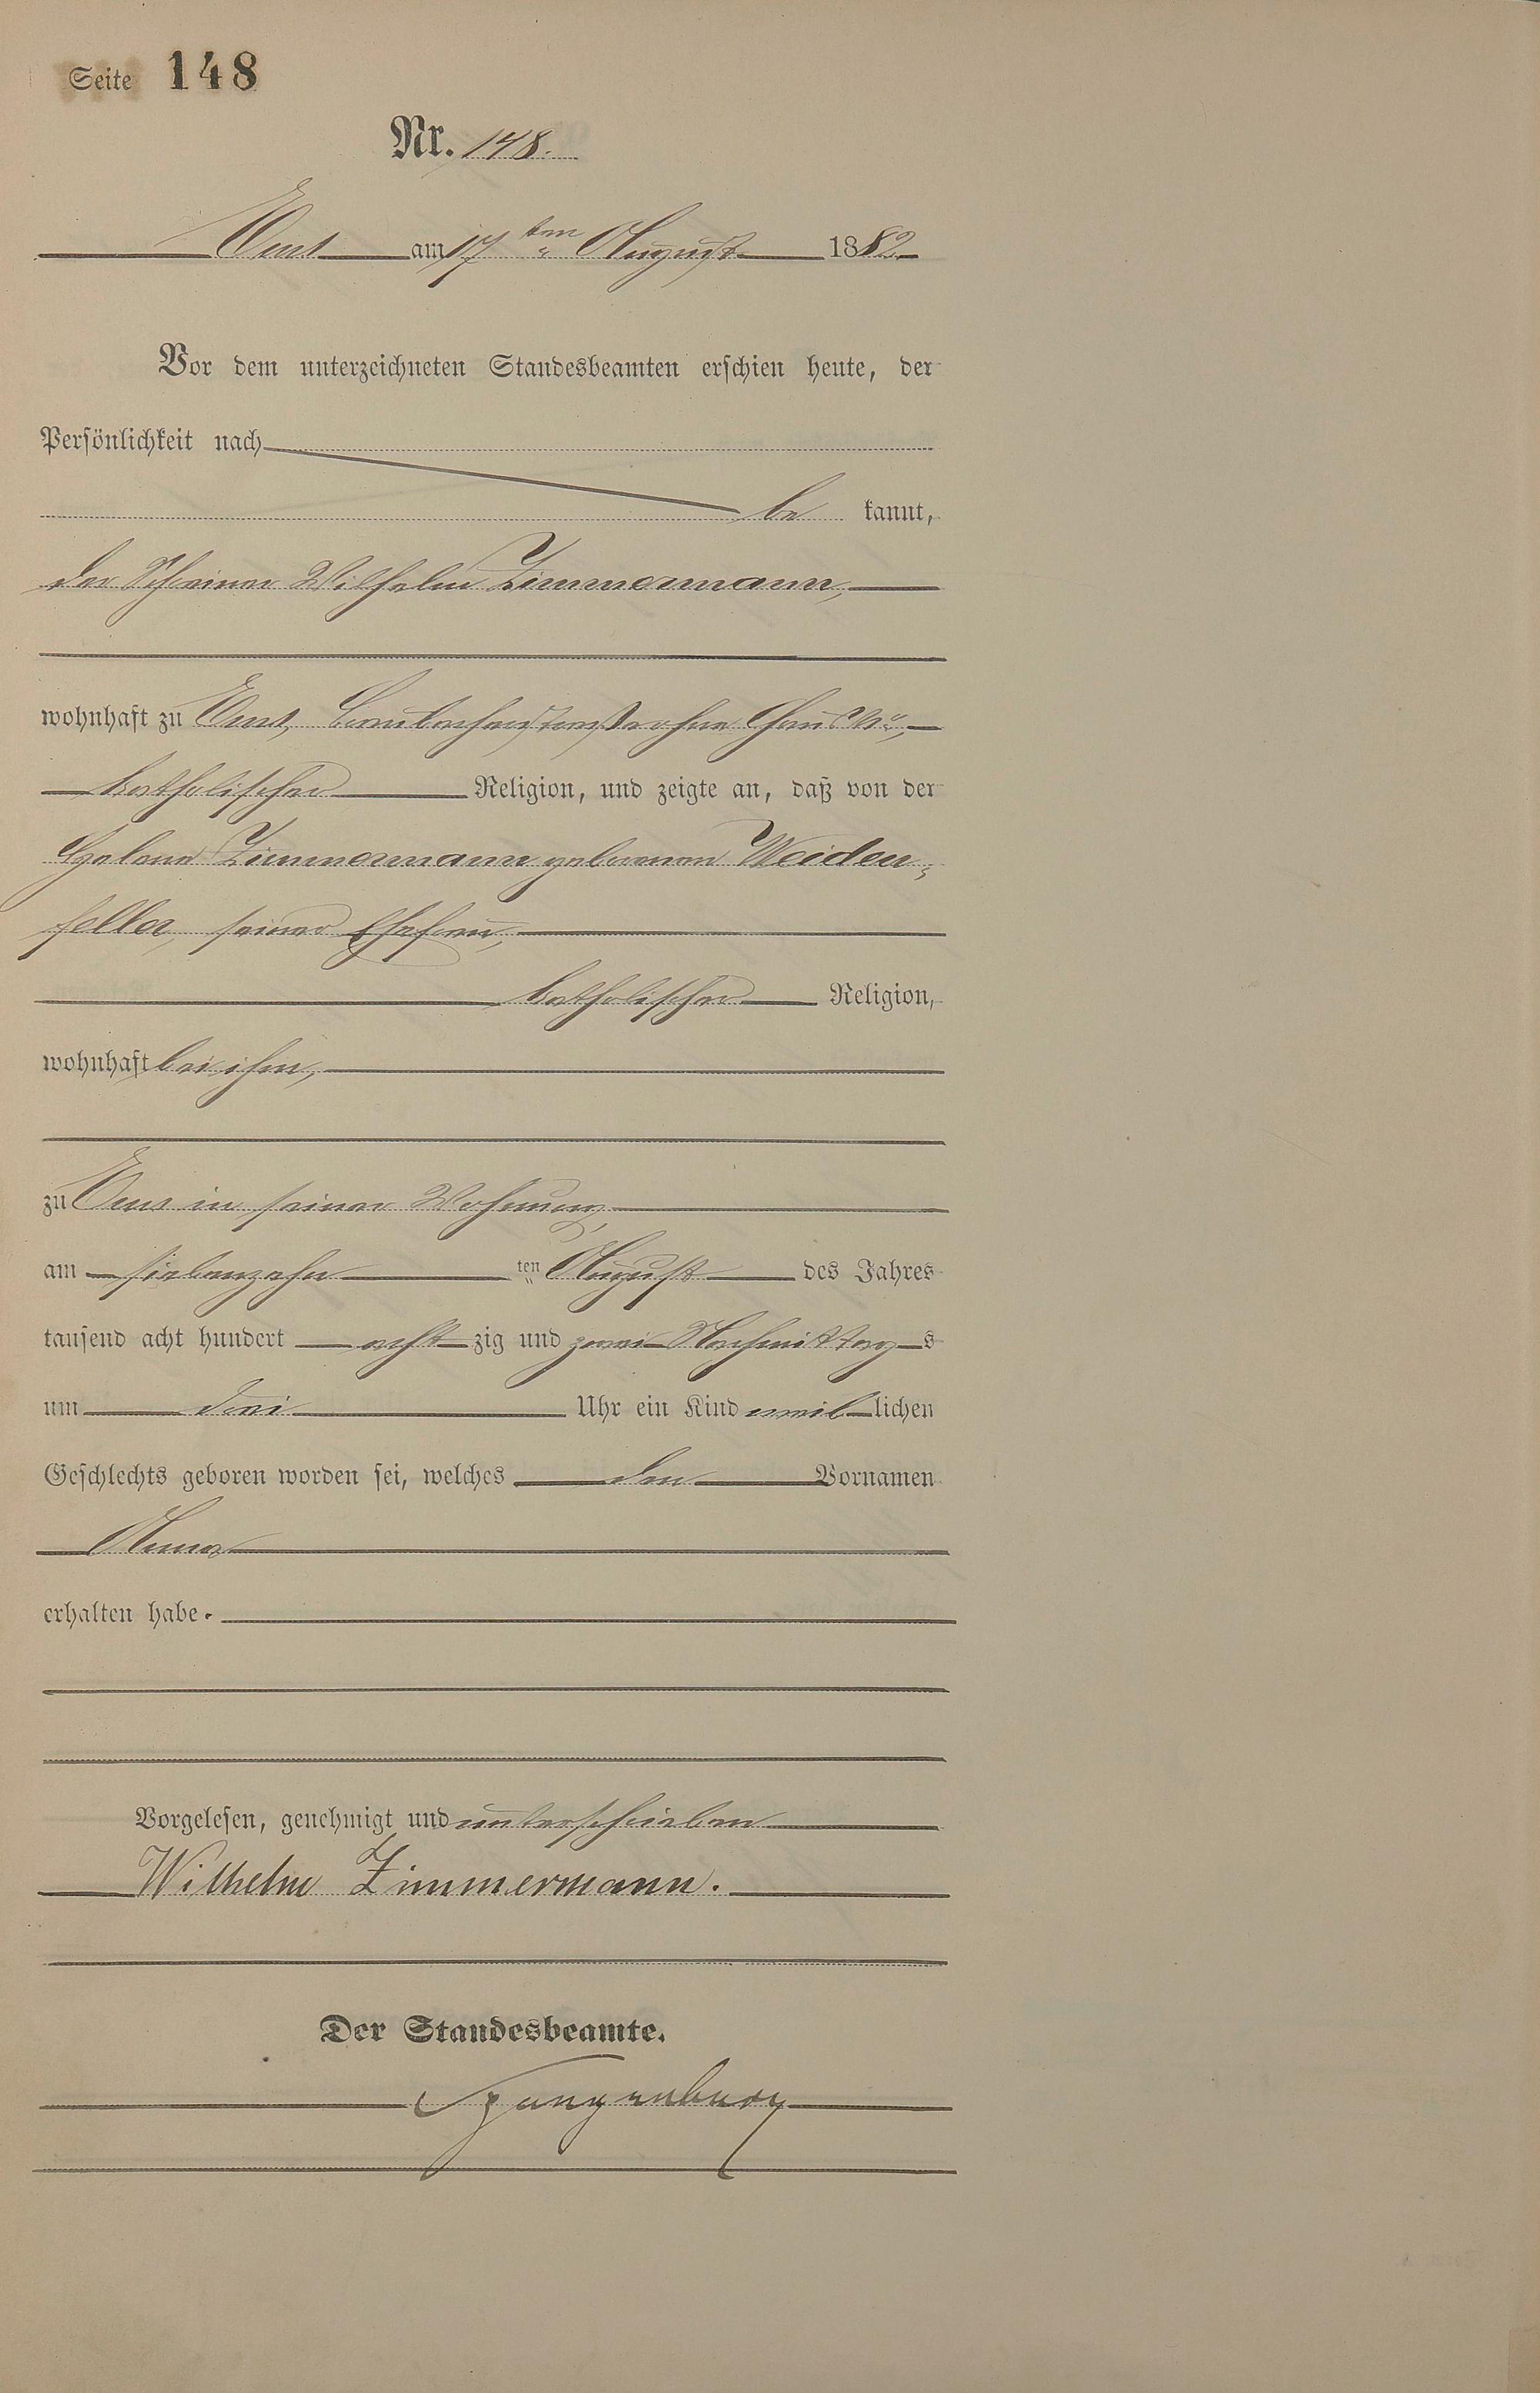 Seite 148
Nr. 148.
Ems am 17ten August 1882
Vor dem unterzeichneten Standesbeamten erschien heute, der
Persönlichkeit nach
be kannt,
der Schreiner Wilhelm Zimmermann,
wohnhaft zu Ems, ohne Haus No,
katholischer Religion, und zeigte an, daß von der
Helena Zimmermann geborenen Weiden-
feller, seiner Ehefrau,
katholischer Religion,
wohnhaft bei ihm,
zu Ems in seiner Wohnung
am siebenzehn ten August des Jahres
tausend acht hundert acht zig und zwei Nachmittag s
um drei Uhr ein Kind weib lichen
Geschlechts geboren worden sei, welches den Vornamen
Anna
erhalten habe.
Vorgelesen, genehmigt und unterschrieben
Wilhelm Zimmermann.
Der Standesbeamte.